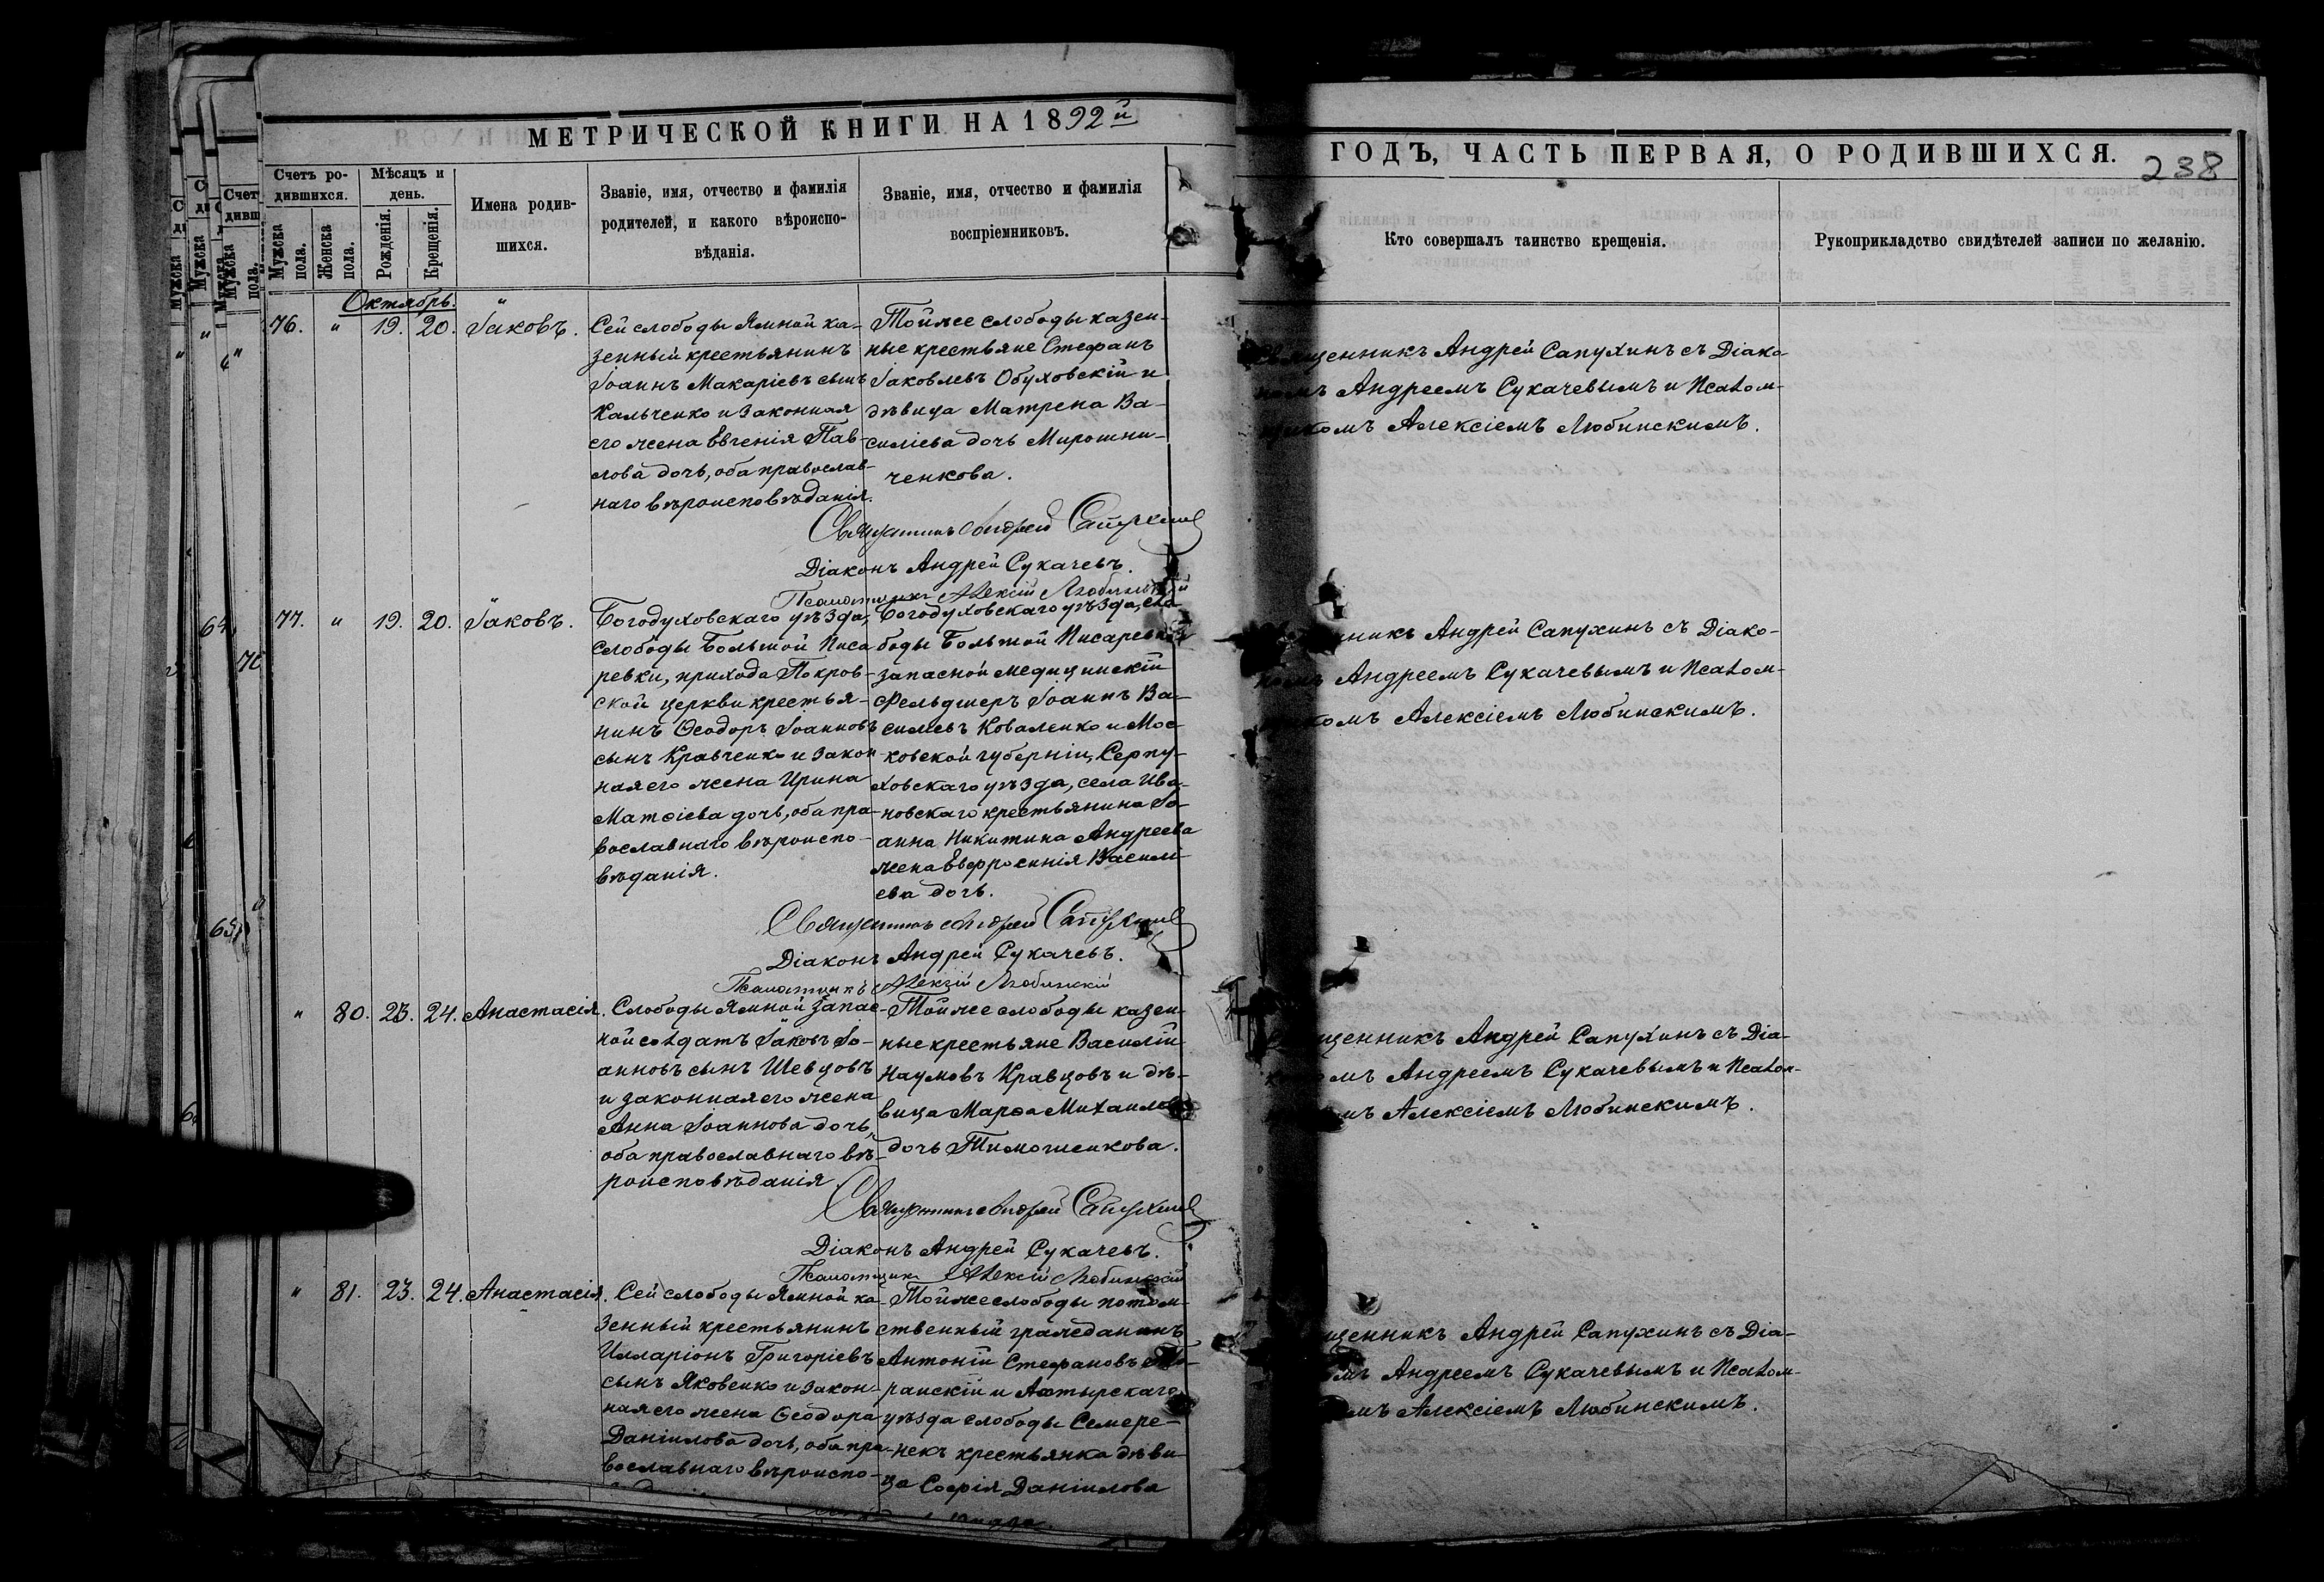 МЕТРИЧЕСКОЙ КНИГИ НА 1892й
ГОДЪ, ЧАСТЬ ПЕРВАЯ, О РОДИВШИХСЯ.
238
Счетъ ро-
дившихся.
Мужска
пола.
Женска
пола.
Мѣсяцъ и
день.
Рожденія.
Крещенія.
Имена родив-
шихся.
Званіе, имя, отчество и фамилія
родителей, и какого вѣроиспо-
вѣданія.
Званіе, имя, отчество и фамилія
воспріемниковъ.
Кто совершалъ таинство крещенія.
Рукоприкладство свидѣтелей записи по желанію.
Октябрь.
76. " 19. 20. Іаковъ.
Сей слободы Ямной ка-
зенный крестьянинъ
Іоаннъ Макаріевъ сынъ
Кальченко и законная
его жена Евгенія Пав-
лова дочь, оба православ-
наго вѣроисповѣданія.
Тойже слободы казен-
ные крестьяне Стефанъ
Іаковлевъ Обуховскій и
дѣвица Матрена Ва-
силіева дочь Мирошни-
ченкова.
Священникъ Андрей Сапухинъ съ Діако-
номъ Андреемъ Сукачевымъ и Псалом-
щикомъ Алексіемъ Любинскимъ.
Священникъ Андрей Сапухинъ
Діаконъ Андрей Сукачевъ.
Псаломщикъ Алексій Любинскій
77. " 19. 20. Іаковъ.
Богодуховскаго уѣзда,
слободы Большой Писа
ревки, прихода Покров-
ской церкви крестья-
нинъ Ѳеодоръ Іоанновъ
сынъ Кравченко и закон
ная его жена Ирина
Матѳіева дочь, оба пра-
вославнаго вѣроиспо-
вѣданія.
Богодуховскаго уѣзда, сло
боды Большой Писаревки
запасной медицинскій
Фельдшеръ Іоаннъ Ва-
силіевъ Коваленко и Мос-
ковской губерніи, Серпу-
ховскаго уѣзда, села Ива-
новскаго крестьянина Іо-
анна Никитина Андреева
жена Евфросинія Васили-
ева дочь.
щенникъ Андрей Сапухинъ съ Діако-
номъ Андреемъ Сукачевымъ и Псалом-
щикомъ Алексіемъ Любинскимъ.
Священникъ Андрей Сапухинъ
Діаконъ Андрей Сукачевъ.
Псаломщикъ Алексій Любинскій
" 80. 23. 24. Анастасія.
Слободы Ямной запас-
ной солдатъ Іаковъ Іо-
анновъ сынъ Шевцовъ
и законная его жена
Анна Іоаннова дочь,
оба православнаго вѣ-
роисповѣданія
Тойже слободы казен-
ные крестьяне Василій
Наумовъ Кравцовъ и дѣ-
вица Марѳа Михаилова
дочь Тимошенкова.
щенникъ Андрей Сапухинъ съ Діа-
омъ Андреемъ Сукачевымъ и Псалом-
мъ Алексіемъ Любинскимъ.
Священникъ Андрей Сапухинъ
Діаконъ Андрей Сукачевъ.
Псаломщикъ Алексій Любинскій
" 81. 23. 24. Анастасія.
Сей слободы Ямной ка-
зенный крестьянинъ
Илларіонъ Григоріевъ
сынъ Яковенко и закон-
ная его жена Ѳеодора
Даніилова дочь, оба пра-
вославнаго вѣроиспо-
Тойже слободы потом-
ственный гражданинъ
Антоній Стефановъ
раискій и Ахтырскаго
уѣзда слободы Семере-
некъ крестьянка дѣви-
ца Софія Даніилова
щенникъ Андрей Сапухинъ съ Діа-
омъ Андреемъ Сукачевымъ и Псалом-
омъ Алексіемъ Любинскимъ.